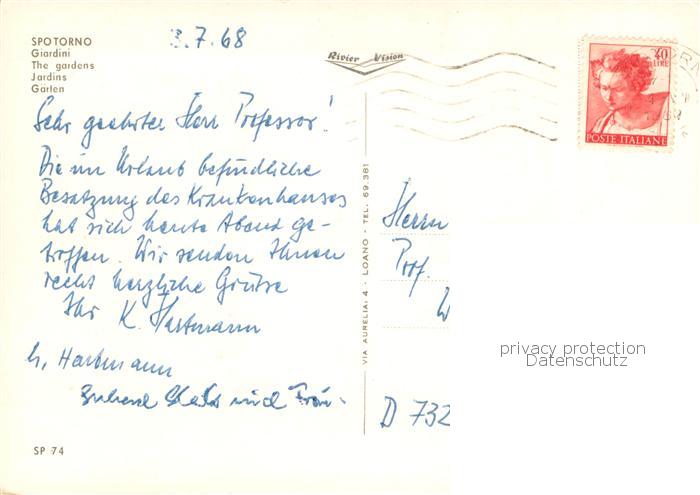 SPOTORNO
Giardini
The gardens
Jardins
Garten
3.7.68
Rivier Vision
40
LIRE
POSTE ITALIANE
Sehr geehrter Herr Professor!
Die im Urlaub befindliche
Besatzung des Krankenhauses
hat sich heute Abend ge-
troffen. Wir senden Ihnen
recht herzliche Grüße
Ihr K. Hartmann
H. Hartmann
und Frau.
VIA AURELIA, 4 - LOANO - TEL. 69.381
Herrn
Prof.
W
D 732
privacy protection
Datenschutz
SP 74